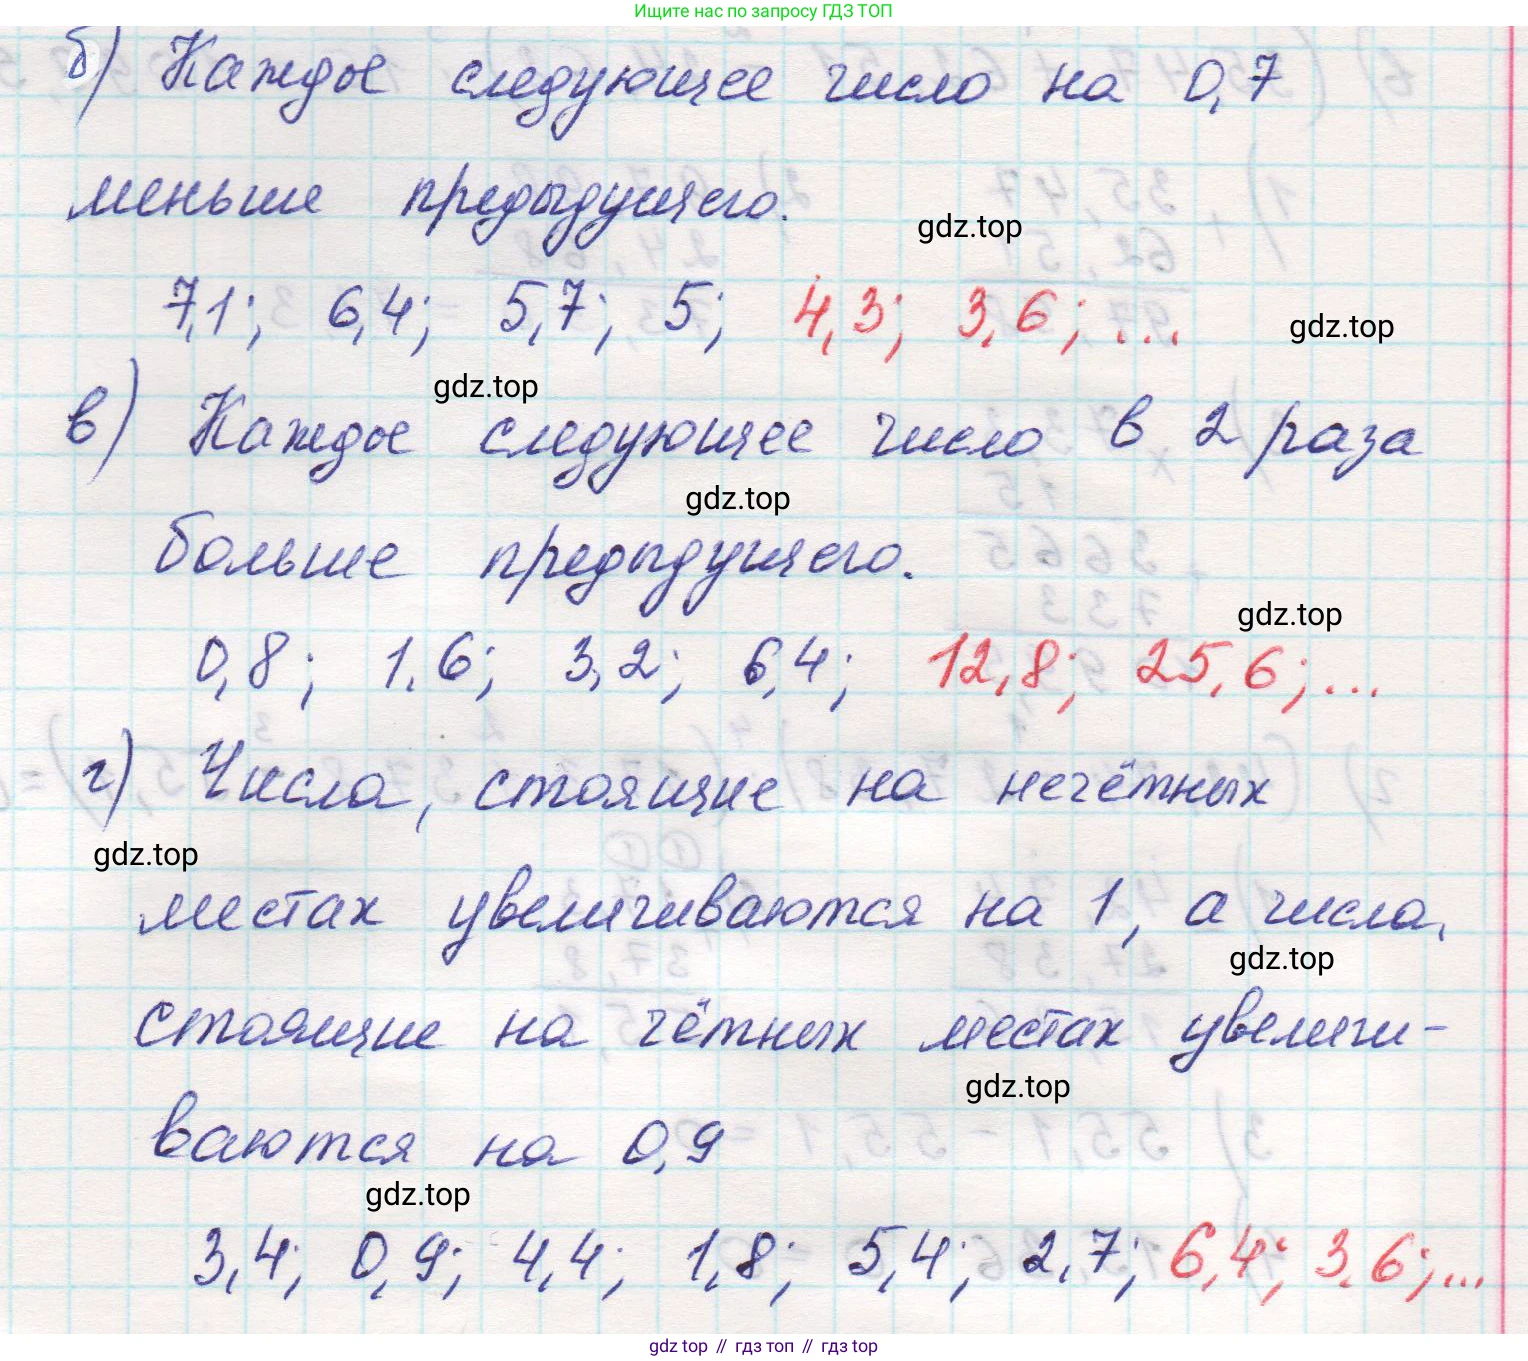 Ищите нас по запросу ГДЗ ТОП
б) Каждое следующее число на 0,7
меньше предыдущего.
gdz.top
7,1; 6,4; 5,7; 5; 4,3; 3,6; ...
gdz.top
gdz.top
в) Каждое следующее число в 2 раза
gdz.top
больше предыдущего.
gdz.top
0,8; 1,6; 3,2; 6,4; 12,8; 25,6; ...
г) Числа, стоящие на нечётных
gdz.top
местах увеличиваются на 1, а числа,
gdz.top
стоящие на чётных местах увеличи-
gdz.top
ваются на 0,9
gdz.top
3,4; 0,9; 4,4; 1,8; 5,4; 2,7; 6,4; 3,6; ...
gdz top // гдз топ // гдз top